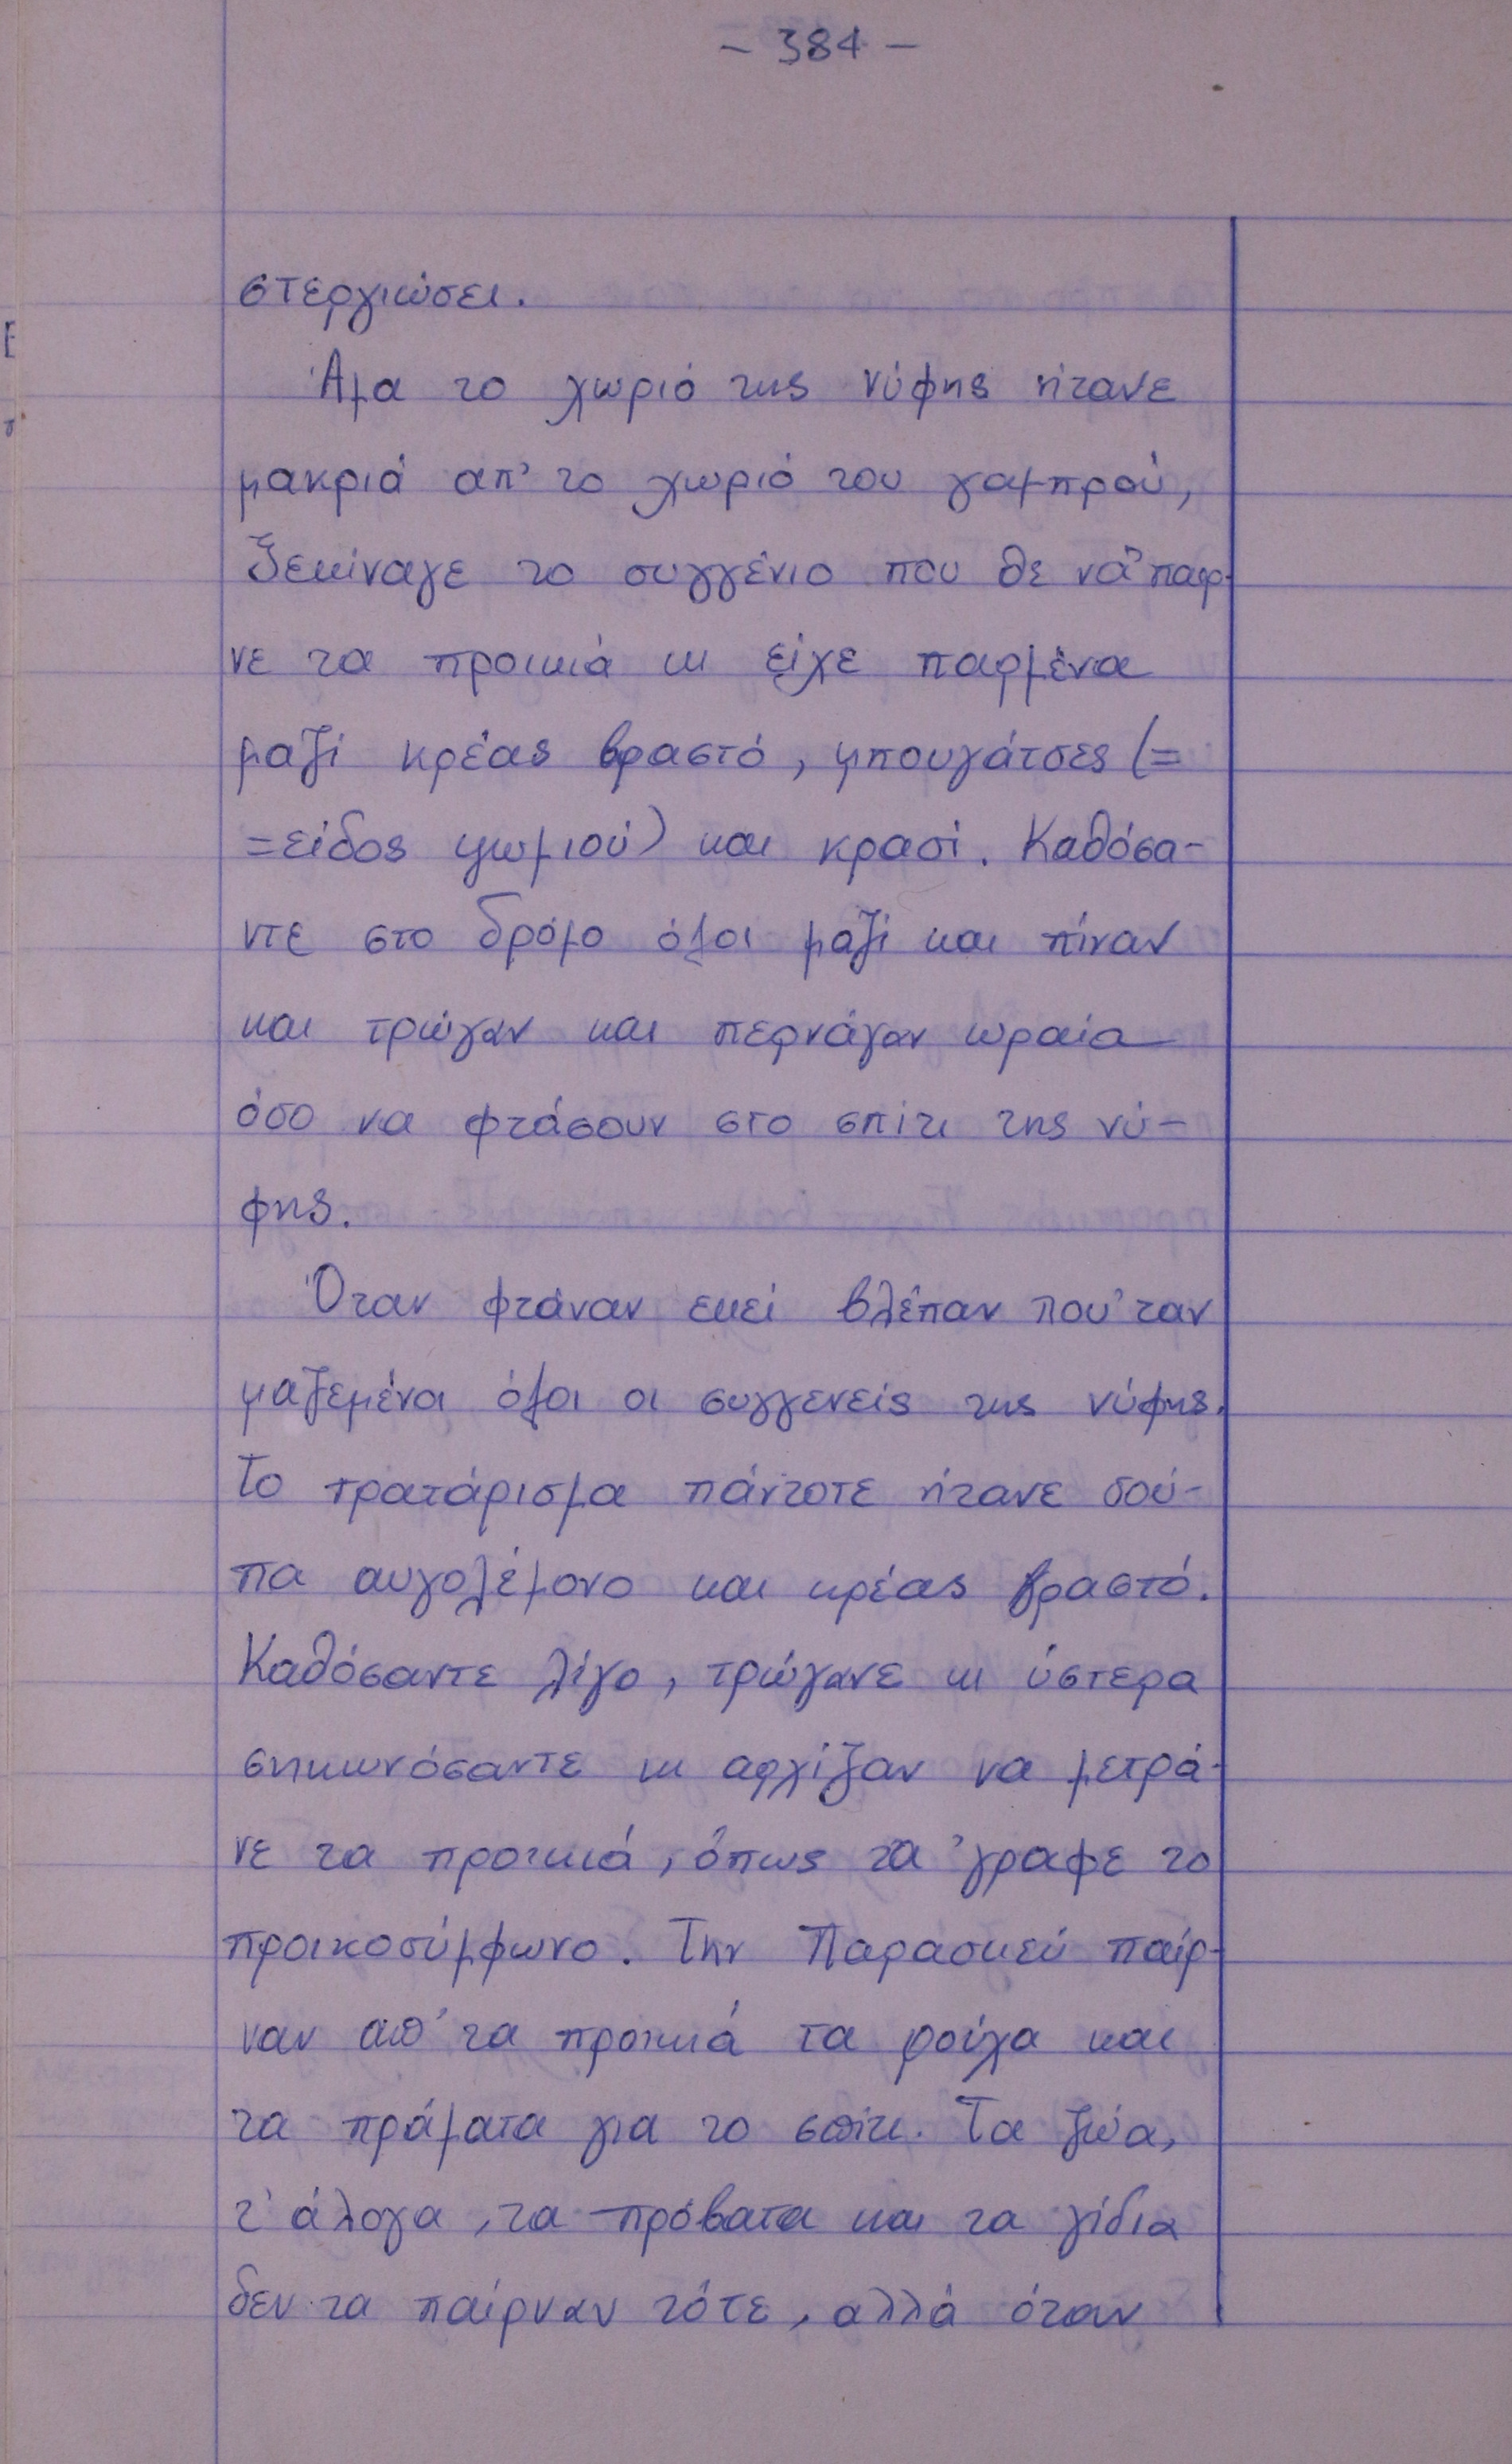 - 384 -
στεργιώσει.
Άμα το χωριό της νύφης ήτανε
μακριά απ' το χωριό του γαμπρού,
ξεκίναγε το συγγένιο που θε νά 'παιρ-
νε τα προικιά κι είχε παρμένα
μαζί κρέας βραστό, μπουγάτσες (=
=είδος ψωμιού) και κρασί. Καθόσα-
ντε στο δρόμο όλοι μαζί και πίναν
και τρώγαν και περνάγαν ωραία
όσο να φτάσουν στο σπίτι της νύ-
φης.
Όταν φτάναν εκεί βλέπαν που 'ταν
μαζεμένοι όλοι οι συγγενείς της νύφης.
Το τρατάρισμα πάντοτε ήτανε σού-
πα αυγολέμονο και κρέας βραστό.
Καθόσαντε λίγο, τρώγανε κι ύστερα
σηκωνόσαντε κι αρχίζαν να μετρά-
νε τα προικιά, όπως τα 'γραφε το
προικοσύμφωνο. Την Παρασκεύ παίρ-
ναν απ' τα προικιά τα ρούχα και
τα πράματα για το σπίτι. Τα ζώα,
τ' άλογα, τα πρόβατα και τα γίδια
δεν τα παίρναν τότε, αλλά όταν